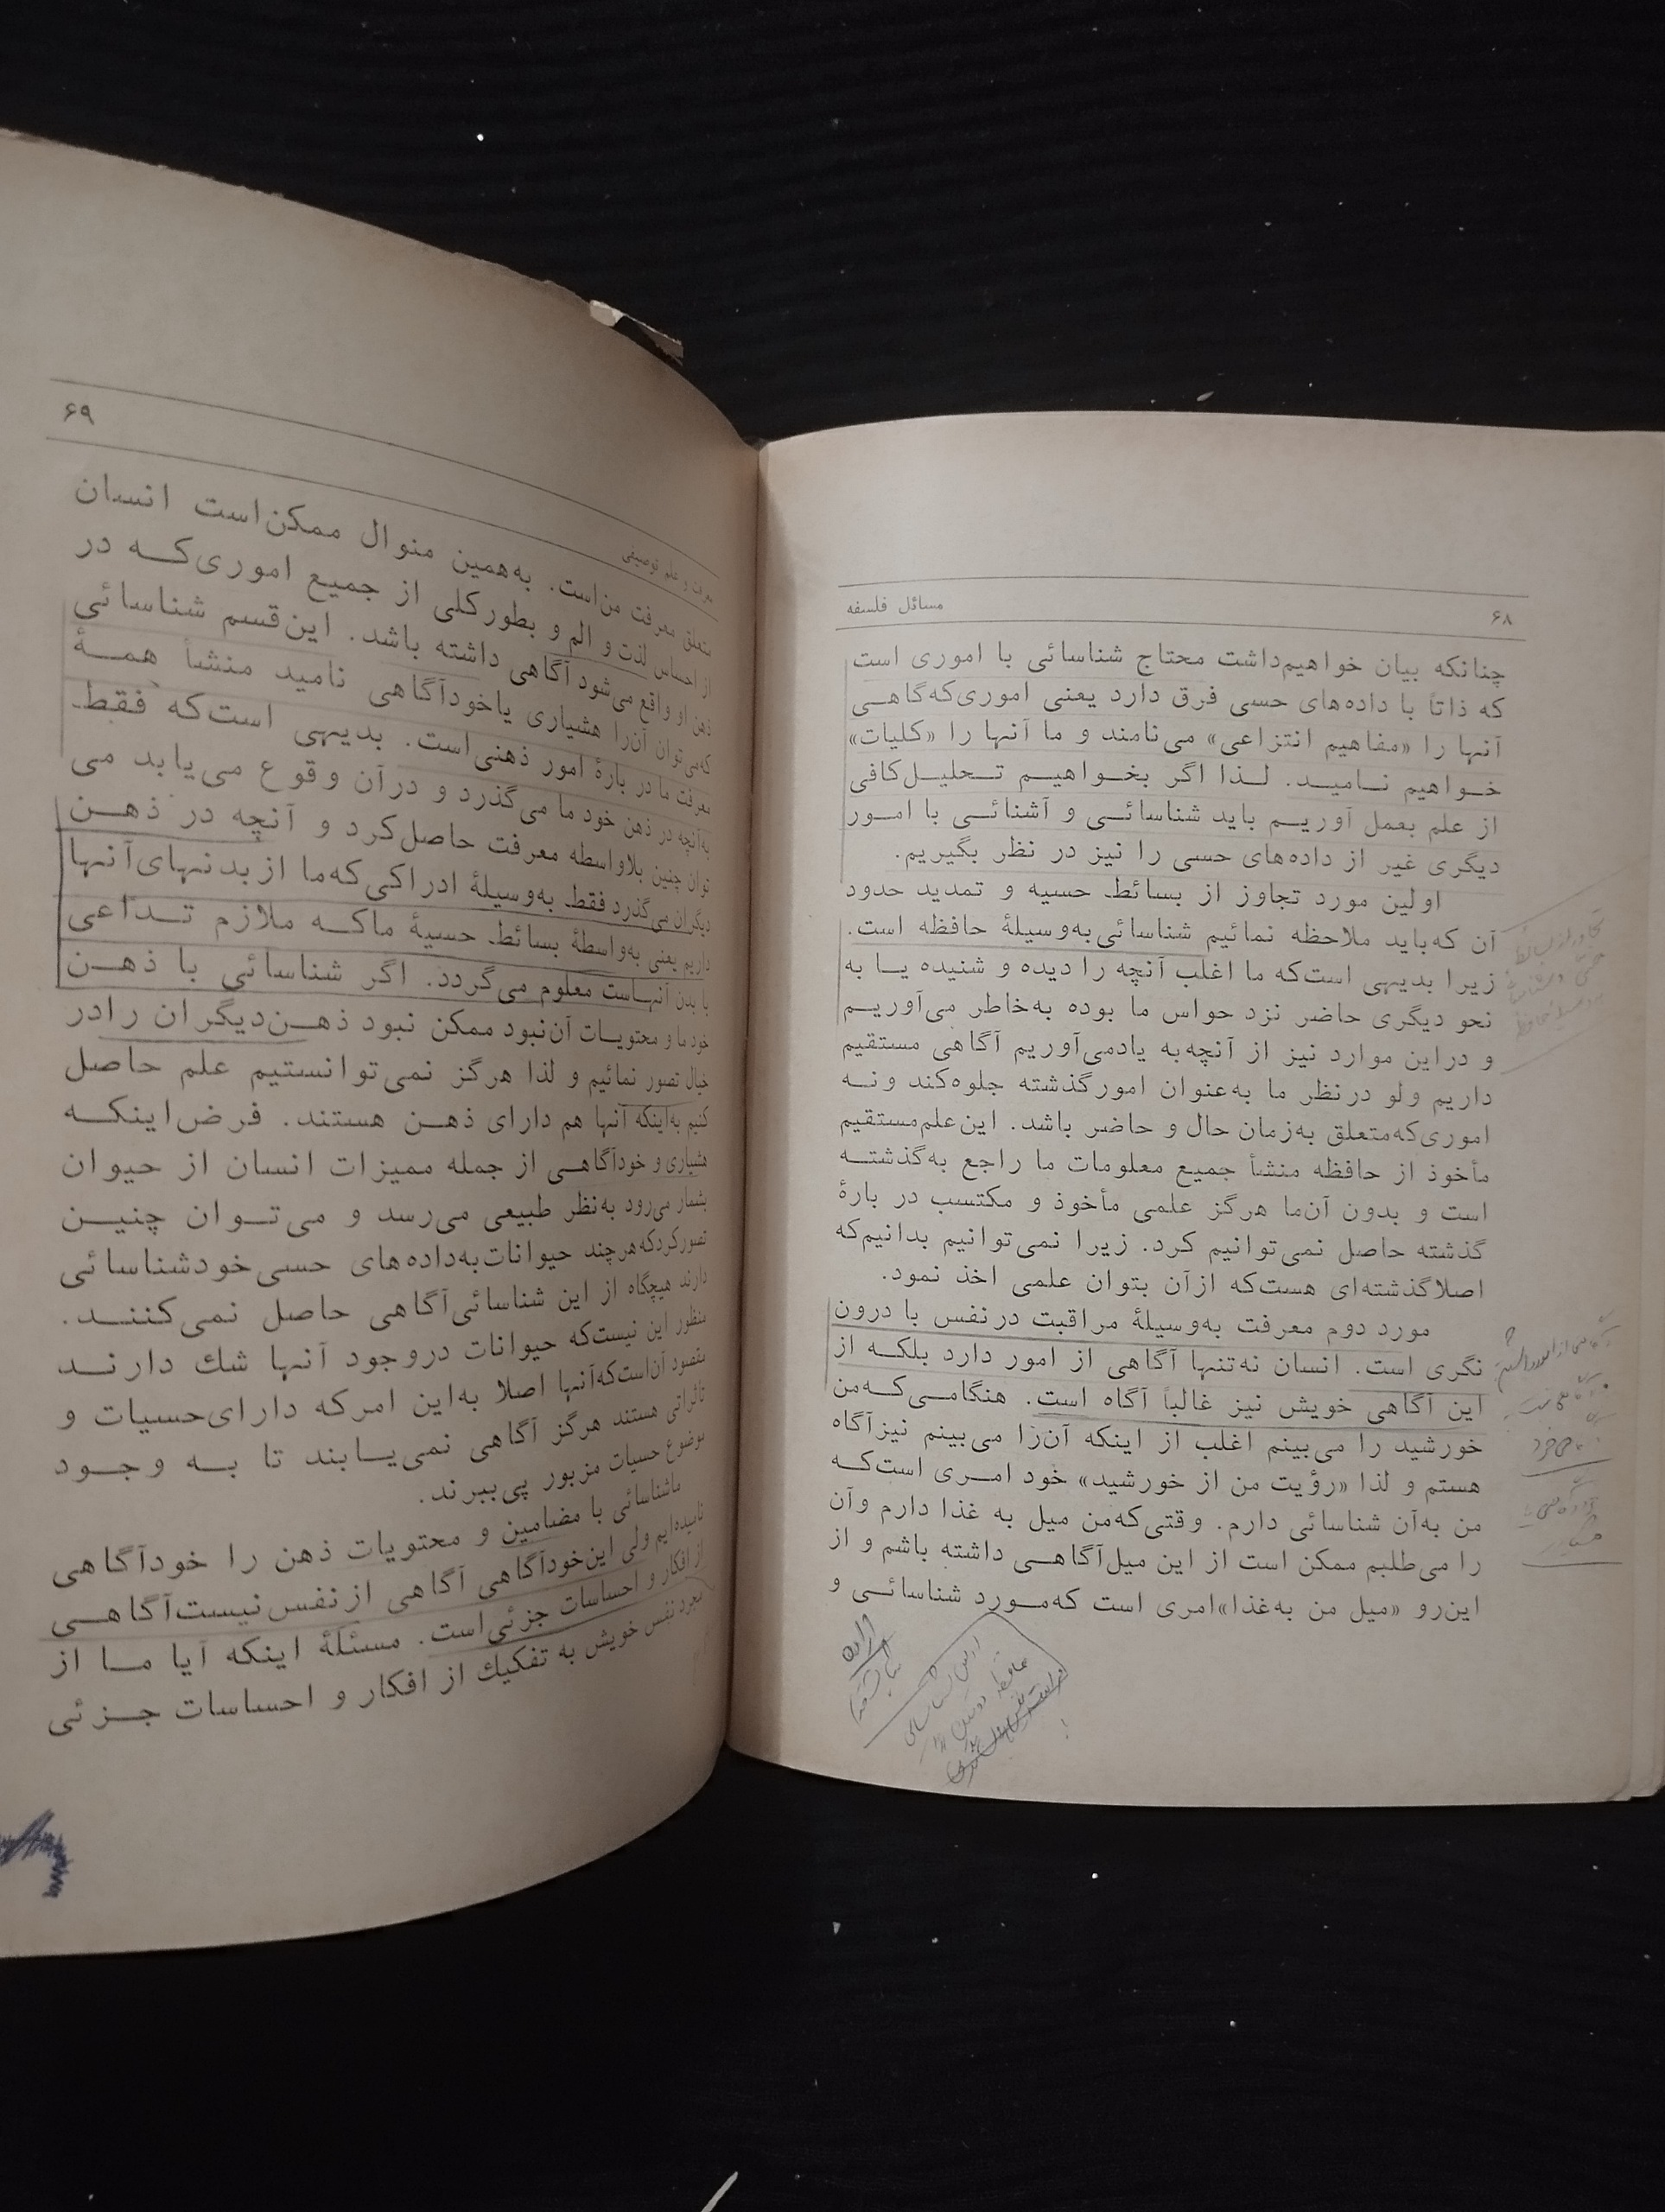 ۶۸
مسائل فلسفه
چنانکه بیان خواهیم‌داشت محتاج شناسائی با اموری است
که ذاتاً با داده‌های حسی فرق دارد یعنی اموری‌که‌گاهی
آنها را «مفاهیم انتزاعی» می‌نامند و ما آنها را «کلیات»
خواهیم نامید. لذا اگر بخواهیم تحلیل‌کافی
از علم بعمل آوریم باید شناسائی و آشنائی با امور
دیگری غیر از داده‌های حسی را نیز در نظر بگیریم.
اولین مورد تجاوز از بسائط حسیه و تمدید حدود
آن که‌باید ملاحظه نمائیم شناسائی‌به‌وسیلهٔ حافظه است.
زیرا بدیهی است‌که ما اغلب آنچه را دیده و شنیده یا به
نحو دیگری حاضر نزد حواس ما بوده به‌خاطر می‌آوریم
و دراین موارد نیز از آنچه‌به یادمی‌آوریم آگاهی مستقیم
داریم ولو درنظر ما به‌عنوان امورگذشته جلوه‌کند ونه
اموری‌که‌متعلق به‌زمان حال و حاضر باشد. این‌علم‌مستقیم
مأخوذ از حافظه منشأ جمیع معلومات ما راجع به‌گذشته
است و بدون آن‌ما هرگز علمی مأخوذ و مکتسب در بارهٔ
گذشته حاصل نمی‌توانیم کرد. زیرا نمی‌توانیم بدانیم‌که
اصلاگذشته‌ای هست‌که ازآن بتوان علمی اخذ نمود.
مورد دوم معرفت به‌وسیلهٔ مراقبت درنفس با درون
نگری است. انسان نه‌تنها آگاهی از امور دارد بلکه از
این آگاهی خویش نیز غالباً آگاه است. هنگامی‌که‌من
خورشید را می‌بینم اغلب از اینکه آن‌را می‌بینم نیزآگاه
هستم و لذا «رؤیت من از خورشید» خود امری است‌که
من به‌آن شناسائی دارم. وقتی‌که‌من میل به غذا دارم وآن
را می‌طلبم ممکن است از این میل‌آگاهی داشته باشم و از
این‌رو «میل من به‌غذا»امری است که‌مورد شناسائی و
معرفت و علم توصیفی
۶۹
متعلق معرفت من‌است. به‌همین منوال ممکن‌است انسان
از احساس لذت و الم و بطورکلی از جمیع اموری‌که در
ذهن او واقع می‌شود آگاهی داشته باشد. این‌قسم شناسائی
که‌می‌توان آن‌را هشیاری یاخودآگاهی نامید منشأ همهٔ
معرفت ما در بارهٔ امور ذهنی‌است. بدیهی است‌که فقط
به‌آنچه در ذهن خود ما می‌گذرد و درآن وقوع می‌یابد می
توان چنین بلاواسطه معرفت حاصل‌کرد و آنچه در ذهن
دیگران می‌گذرد فقط به‌وسیلهٔ ادراکی‌که‌ما از بدنهای‌آنها
داریم یعنی به‌واسطهٔ بسائط حسیهٔ ماکه ملازم تداعی
با بدن آنهاست معلوم می‌گردد. اگر شناسائی با ذهن
خود ما و محتویات آن‌نبود ممکن نبود ذهن‌دیگران رادر
خیال تصور نمائیم و لذا هرگز نمی‌توانستیم علم حاصل
کنیم به‌اینکه آنها هم دارای ذهن هستند. فرض‌اینکه
هشیاری و خودآگاهی از جمله ممیزات انسان از حیوان
بشمار می‌رود به‌نظر طبیعی می‌رسد و می‌توان چنین
تصورکردکه‌هرچند حیوانات‌به‌داده‌های حسی‌خودشناسائی
دارند هیچگاه از این شناسائی‌آگاهی حاصل نمی‌کنند.
منظور این نیست‌که حیوانات دروجود آنها شك دارند
مقصود آن‌است‌که‌آنها اصلا به‌این امرکه دارای‌حسیات و
تأثراتی هستند هرگز آگاهی نمی‌یابند تا به وجود
موضوع حسیات مزبور پی‌ببرند.
ماشناسائی با مضامین و محتویات ذهن را خودآگاهی
نامیده‌ایم ولی این‌خودآگاهی آگاهی ازنفس‌نیست‌آگاهی
از افکار و احساسات جزئی‌است. مسئلهٔ اینکه آیا ما از
مجرد نفس خویش به تفکیك از افکار و احساسات جزئی